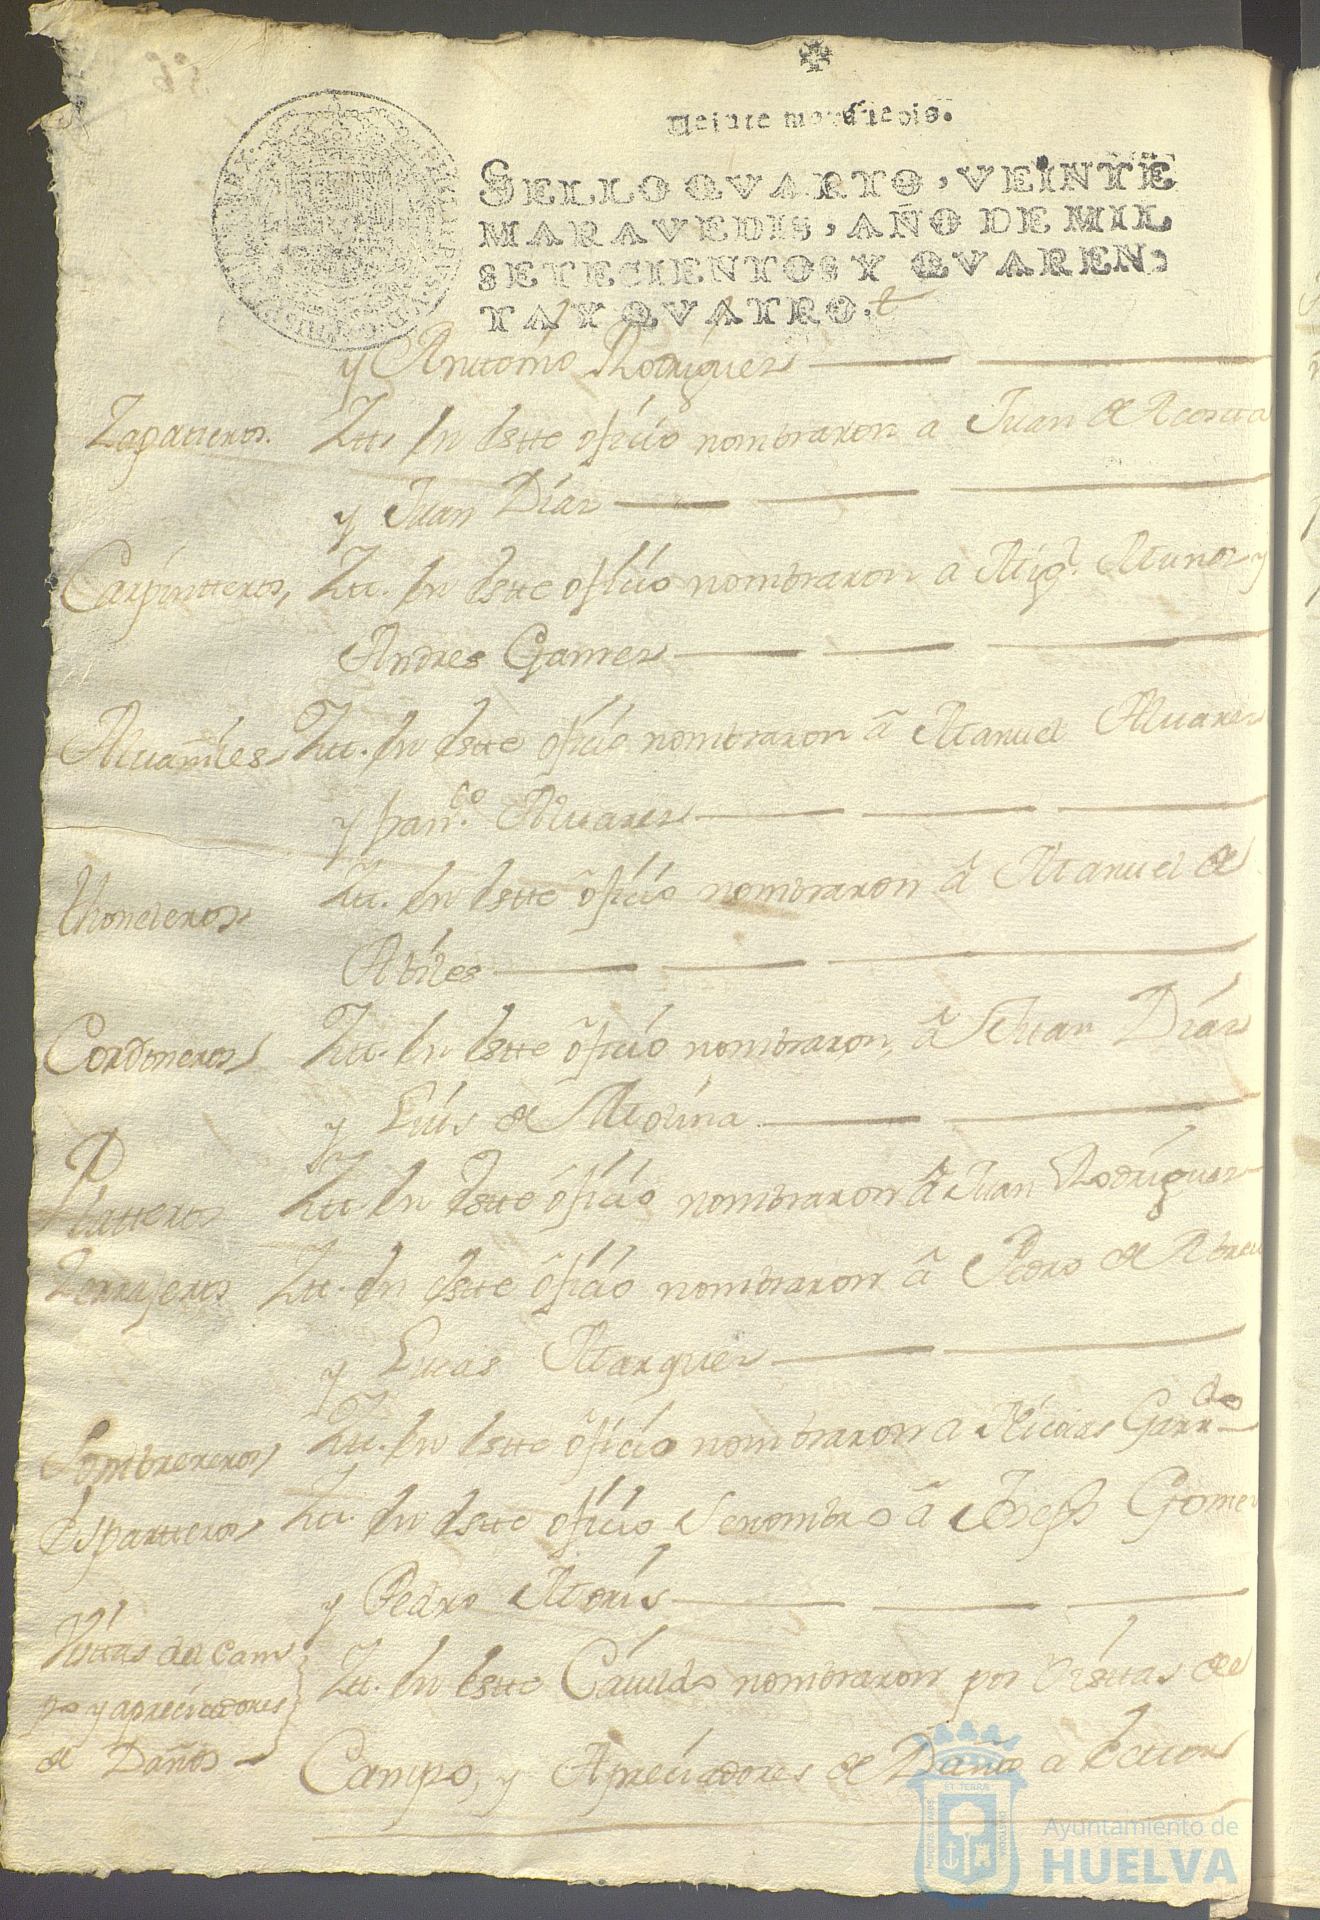 Veinte maravedis.
SELLO QVARTO, VEINTE
MARAVEDIS, AÑO DE MIL
SETECIENTOS Y QVAREN,
TA Y QVATRO.
y Antonio Rodriguez
Zapatteros. Ytt. En estte ofiçio nombraron a Juan de Acosta
y Juan Díaz
Carpintteros, Ytt. En estte ofiçio nombraron a Migl. Munoz y
Andres Gamez
Alvañiles Ytt. En estte ofiçio nombraron a Manuel Alvarez
y fran.co Alvarez
Thoneleros Ytt. En estte ofiçio nombraron a Manuel de
Abiles
Cordoneros Ytt. En estte ofiçio nombraron, a Juan Díaz
y Luis de Molina
Plattero Ytt. En estte ofiçio nombraron a Juan Rodriguez
Zerrajeros Ytt. En estte ofiçio nombraron a Pedro de Abreu
y Lucas Marquez
Sombrereros Ytt. En estte ofiçio nombraron a Nicolas Garr.do
Espartteros Ytt. En estte ofiçio Se nombro a Joseph Gomez
y Pedro
Visttas del Cam
po y apreciadores
de Daños
Ytt. En estte Cavildo nombraron por Visttas de
Campo, y Apreciadores de Daño a
Ayuntamiento de
HUELVA